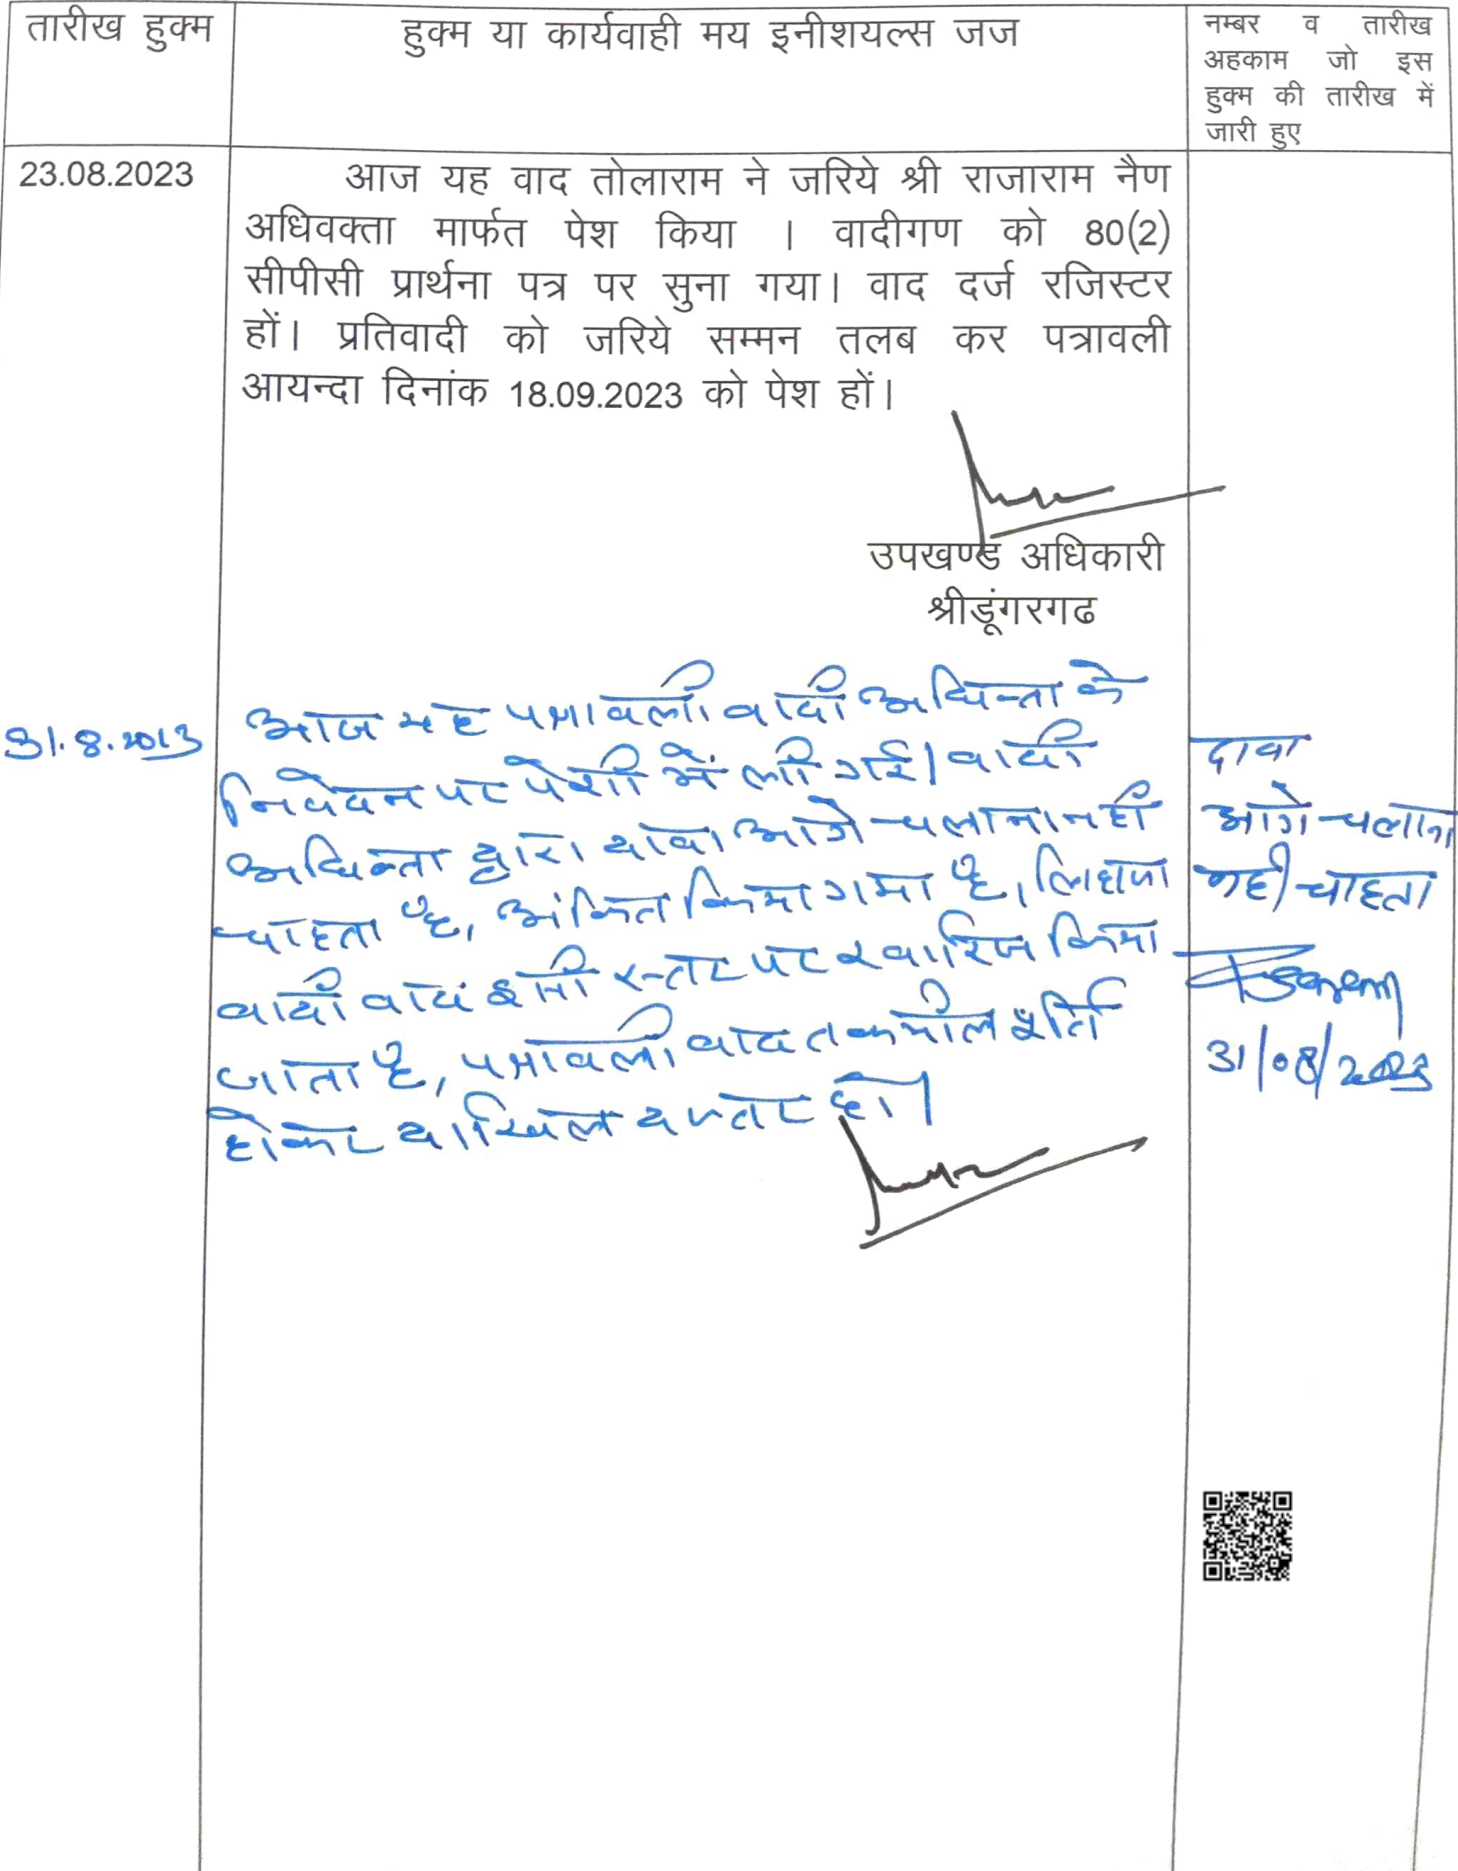 तारीख हुक्म
हुक्म या कार्यवाही मय इनीशयल्स जज
नम्बर व तारीख
अहकाम जो इस
हुक्म की तारीख में
जारी हुए
23.08.2023
आज यह वाद तोलाराम ने जरिये श्री राजाराम नैण
अधिवक्ता मार्फत पेश किया । वादीगण को 80(2)
सीपीसी प्रार्थना पत्र पर सुना गया। वाद दर्ज रजिस्टर
हों। प्रतिवादी को जरिये सम्मन तलब कर पत्रावली
आयन्दा दिनांक 18.09.2023 को पेश हों।
उपखण्ड अधिकारी
श्रीडूंगरगढ
31.8.2013
आज यह पत्रावली वादी अधिवक्ता के
निवेदन पर पेशी में ली गई। वादी
अधिवक्ता द्वारा दावा आगे चलाना नहीं
चाहता है, अंकित किया गया है, लिहाजा
वादी वाद इसी स्तर पर खारिज किया
जाता है, पत्रावली बाद तकमील पूर्ति
होकर दाखिल दफ्तर हो।
दावा
आगे चलाना
नही चाहता
31/08/2023